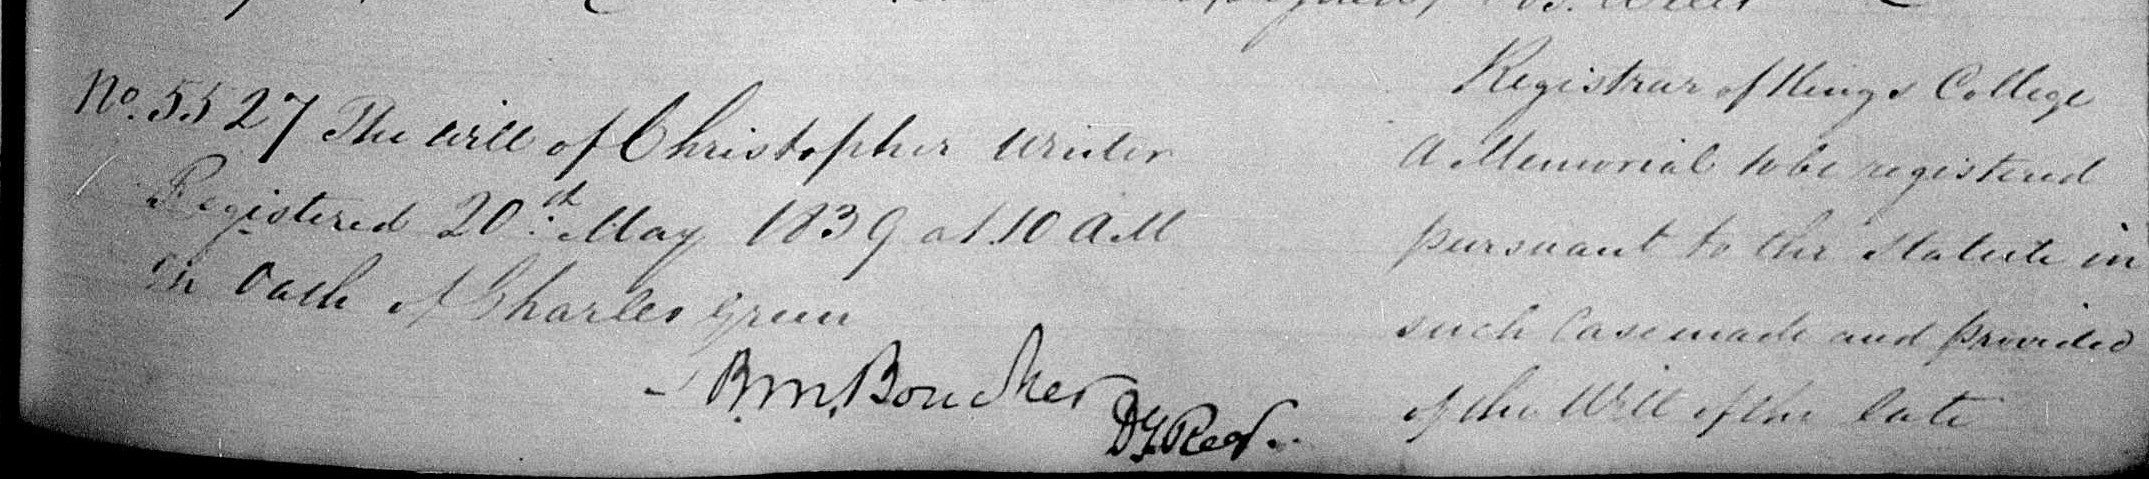 No. 5527 The will of Christopher Writer
Registered 20th May 1839 at 10 AM
on Oath of Charles Green
B. M. Boucher
Dy Regr.
Registrar of Kings College
a Memorial to be registered
pursuant to the Statute in
such Case made and provided
of the Will of the late